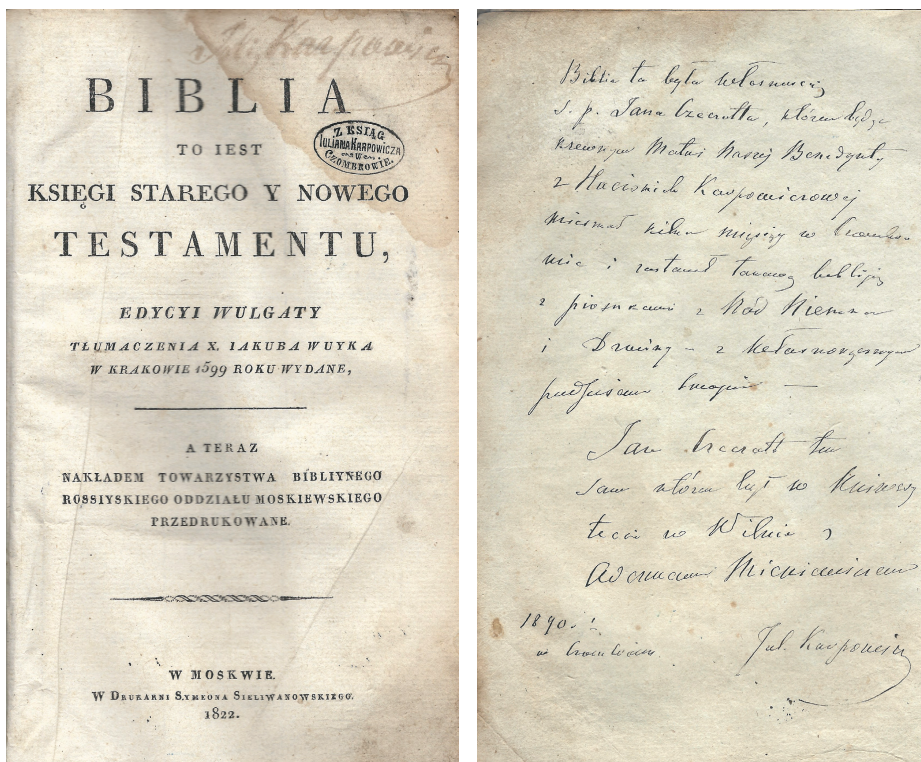 Karpowicz
BIBLIA
Z KSIĄG
JULIANA KARPOWICZA
W
CZOMBROWIE.
TO IEST
KSIĘGI STAREGO Y NOWEGO
TESTAMENTU,
EDYCYI WULGATY
TŁUMACZENIA X. IAKUBA WUYKA
W KRAKOWIE 1599 ROKU WYDANE,
A TERAZ
NAKŁADEM TOWARZYSTWA BIBLIYNEGO
ROSSIYSKIEGO ODDZIAŁU MOSKIEWSKIEGO
PRZEDRUKOWANE.
W MOSKWIE.
W DRUKARNI SYMEONA SIELIWANOWSKIEGO.
1822.
Biblia ta była własnością
ś. p. Jana Czeczotta, który będąc
krewnym Matki Naszej Benedykty
z Karpowiczowej
mieszkał kilka mięsięcy w
i zostawił biblię
z piosnkami z Nad Niemna
i Dźwiny z własnoręcznym
podpisem
Jan Czeczott ten
sam który był w
w Wilnie z
Adamem Mickiewiczem
1890 r.
w
Jul. Karpowicz